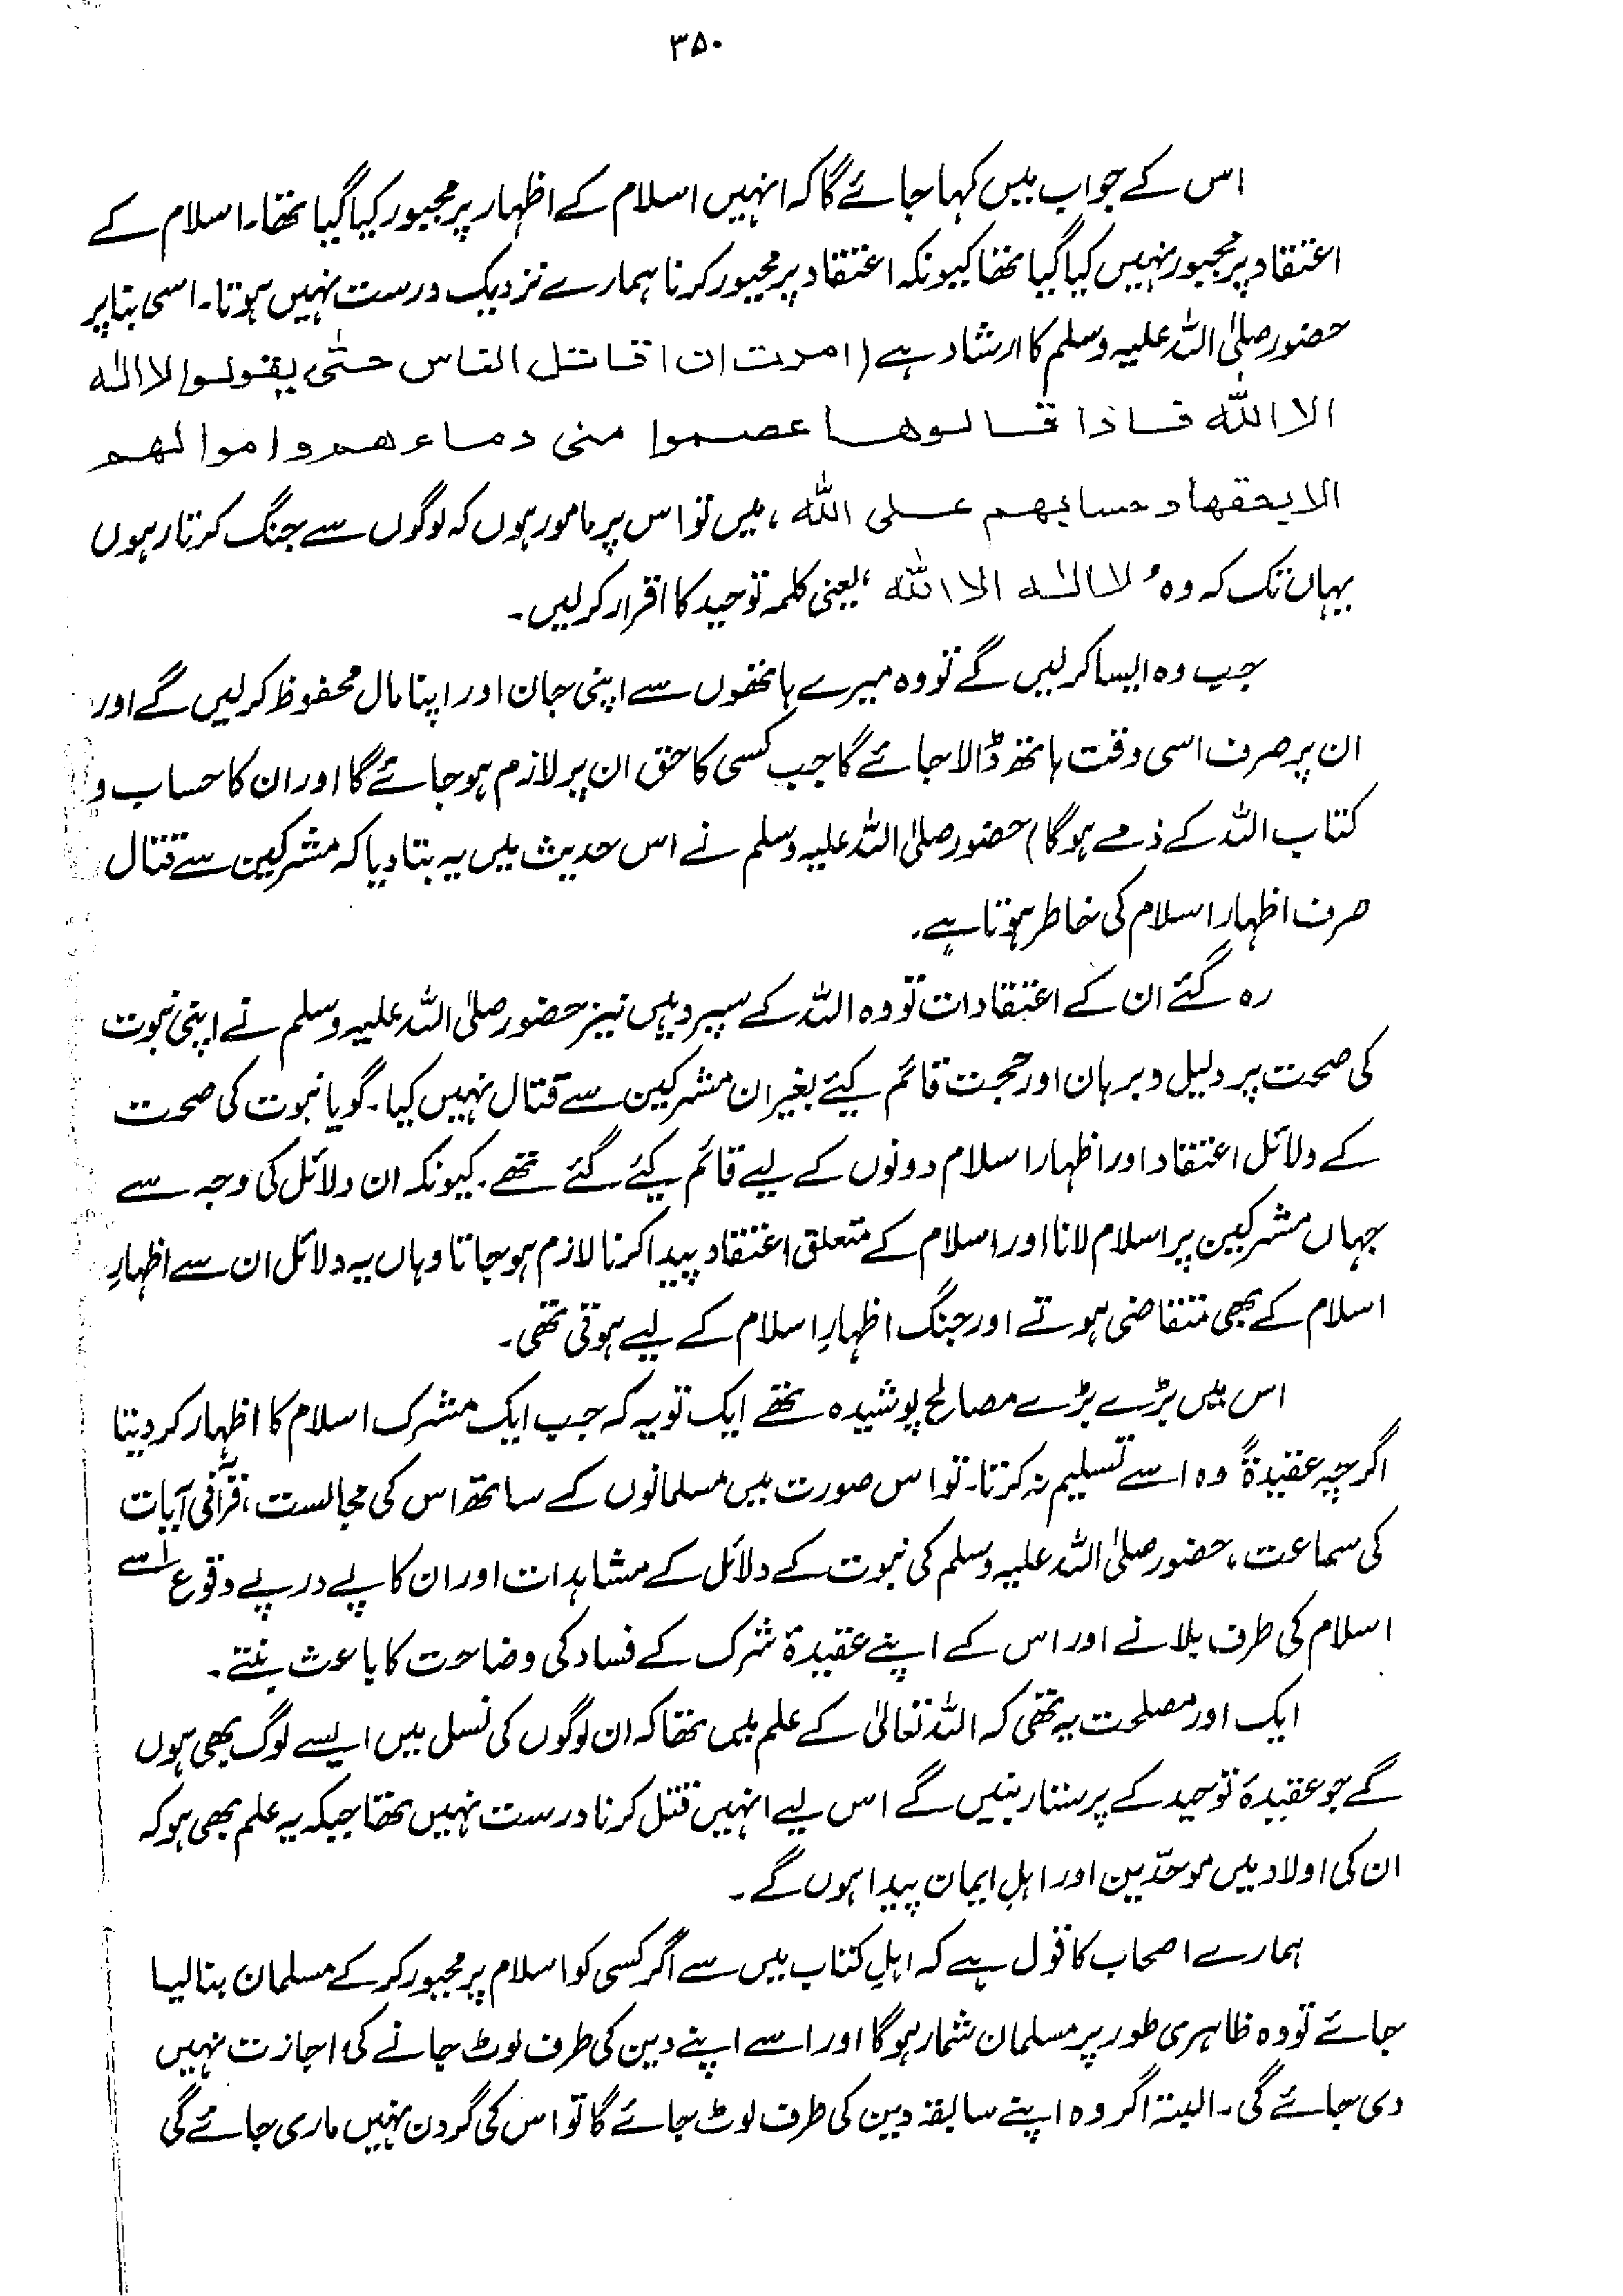 ۳۵۰
اس کے جواب میں کہا جائے گا کہ انہیں اسلام کے اظہار پر مجبور کیا گیا تھا۔ اسلام کے
اعتقاد پر مجبور نہیں کیا گیا تھا کیونکہ اعتقاد پر مجبور کرنا ہمارے نزدیک درست نہیں ہوتا۔ اسی بنا پر
حضور صلی اللہ علیہ وسلم کا ارشاد ہے (امرت ان اقاتل الناس حتّٰی یقولوا لا الٰہ
الا اللّٰہ فاذا قالوھا عصموا منی دماءھم واموالھم
الا بحقھا وحسابھم علی اللّٰہ، میں تو اس پر مامور ہوں کہ لوگوں سے جنگ کرتا رہوں
یہاں تک کہ وہ 'لا الٰہ الا اللّٰہ' یعنی کلمہ توحید کا اقرار کرلیں۔
جب وہ ایسا کرلیں گے تو وہ میرے ہاتھوں سے اپنی جان اور اپنا مال محفوظ کرلیں گے اور
ان پر صرف اسی وقت ہاتھ ڈالا جائے گا جب کسی کا حق ان پر لازم ہو جائے گا اور ان کا حساب و
کتاب اللہ کے ذمے ہوگا) حضور صلی اللہ علیہ وسلم نے اس حدیث میں یہ بتا دیا کہ مشرکین سے قتال
صرف اظہار اسلام کی خاطر ہوتا ہے۔
رہ گئے ان کے اعتقادات تو وہ اللہ کے سپرد ہیں نیز حضور صلی اللہ علیہ وسلم نے اپنی نبوت
کی صحت پر دلیل و برہان اور حجت قائم کیئے بغیر ان مشرکین سے قتال نہیں کیا۔ گویا نبوت کی صحت
کے دلائل اعتقاد اور اظہار اسلام دونوں کے لیے قائم کیئے گئے تھے۔ کیونکہ ان دلائل کی وجہ سے
جہاں مشرکین پر اسلام لانا اور اسلام کے متعلق اعتقاد پیدا کرنا لازم ہو جاتا وہاں یہ دلائل ان سے اظہارِ
اسلام کے بھی متقاضی ہوتے اور جنگ اظہارِ اسلام کے لیے ہوتی تھی۔
اس میں بڑے بڑے مصالح پوشیدہ تھے ایک تو یہ کہ جب ایک مشرک اسلام کا اظہار کر دیتا
اگرچہ عقیدۃً وہ اسے تسلیم نہ کرتا۔ تو اس صورت میں مسلمانوں کے ساتھ اس کی مجالست، قرآنی آیات
کی سماعت، حضور صلی اللہ علیہ وسلم کی نبوت کے دلائل کے مشاہدات اور ان کا پے در پے وقوع اسے
اسلام کی طرف بلانے اور اس کے اپنے عقیدۂ شرک کے فساد کی وضاحت کا باعث بنتے۔
ایک اور مصلحت یہ تھی کہ اللہ تعالیٰ کے علم میں تھا کہ ان لوگوں کی نسل میں ایسے لوگ بھی ہوں
گے جو عقیدۂ توحید کے پرستار بنیں گے اس لیے انہیں قتل کرنا درست نہیں تھا جبکہ یہ علم بھی ہو کہ
ان کی اولاد میں موحّدین اور اہلِ ایمان پیدا ہوں گے۔
ہمارے اصحاب کا قول ہے کہ اہلِ کتاب میں سے اگر کسی کو اسلام پر مجبور کر کے مسلمان بنا لیا
جائے تو وہ ظاہری طور پر مسلمان شمار ہوگا اور اسے اپنے دین کی طرف لوٹ جانے کی اجازت نہیں
دی جائے گی۔ البتہ اگر وہ اپنے سابقہ دین کی طرف لوٹ جائے گا تو اس کی گردن نہیں ماری جائے گی